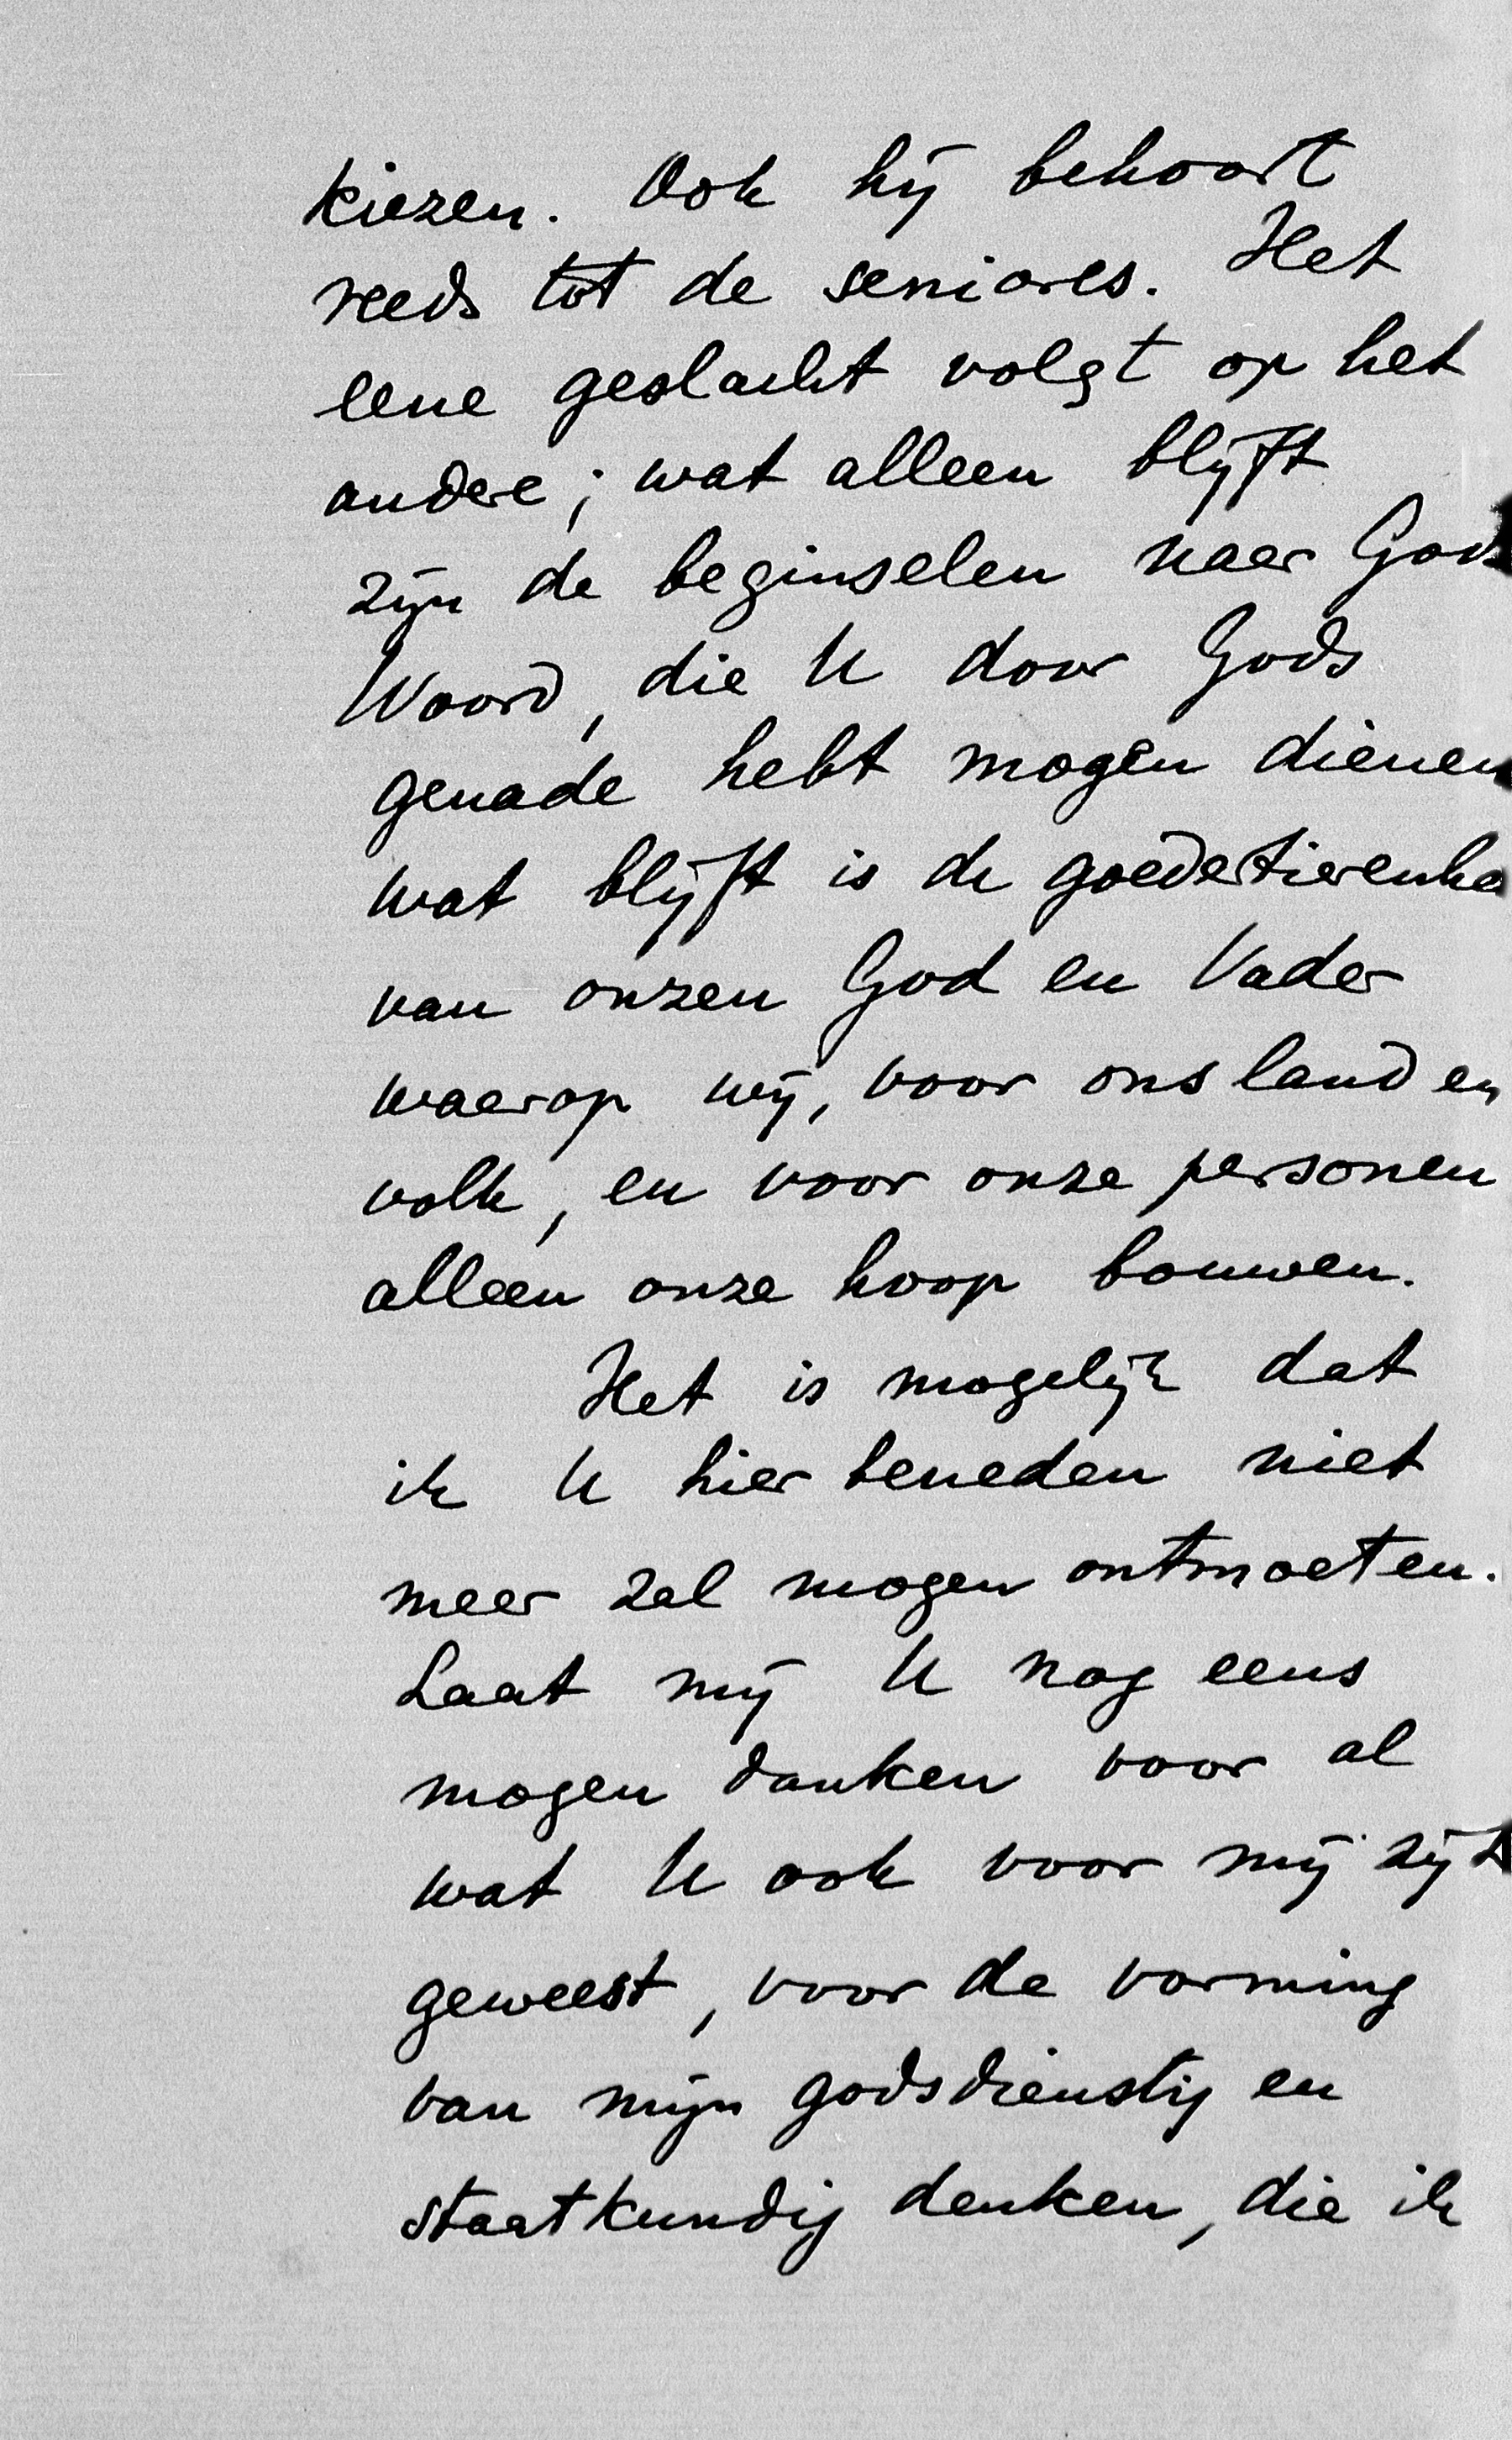 kiezen. Ook hij behoort
reeds tot de seniores. Het
eene geslacht volgt op het
andere; wat alleen blijft
zijn de beginselen naar Gods
Woord, die U door Gods
genade hebt mogen dienen
wat blijft is de goedertierenhe
van onzen God en Vader
waarop wij, voor ons land en
volk, en voor onze personen
alleen onze hoop bouwen.
Het is mogelijk dat
ik U hier beneden niet
meer zal mogen ontmoeten.
Laat mij U nog eens
mogen danken voor al
wat U ook voor mij zijt
geweest, voor de vorming
van mijn godsdienstig en
staatkundig denken, die ik